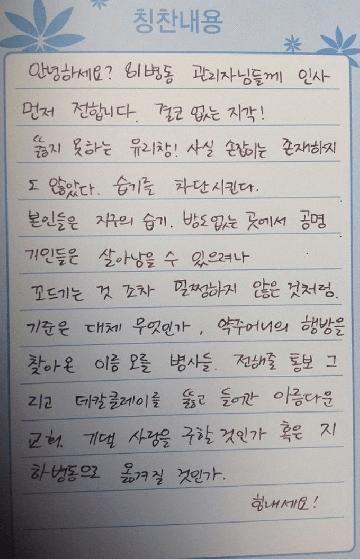 칭찬내용
안녕하세요? 81병동 관리자님들께 인사
먼저 전합니다. 결코 없는 지각!
뚫지 못하는 유리창! 사실 손잡이는 존재하지
도 않았다. 습기를 차단시킨다.
본인들은 지구의 습기. 밤도없는 곳에서 공명
거인들은 살아남을 수 있으려나
꼬드기는 것 조차 멀쩡하지 않은 것처럼.
기준은 대체 무엇인가, 약주머니의 행방을
찾아온 이름 모를 병사들. 전해줄 통보 그
리고 데칼클레이를 뚫고 들어간 아름다운
교회. 기댈 사람을 구할 것인가 혹은 지
하병동으로 옮겨질 것인가.
힘내세요!